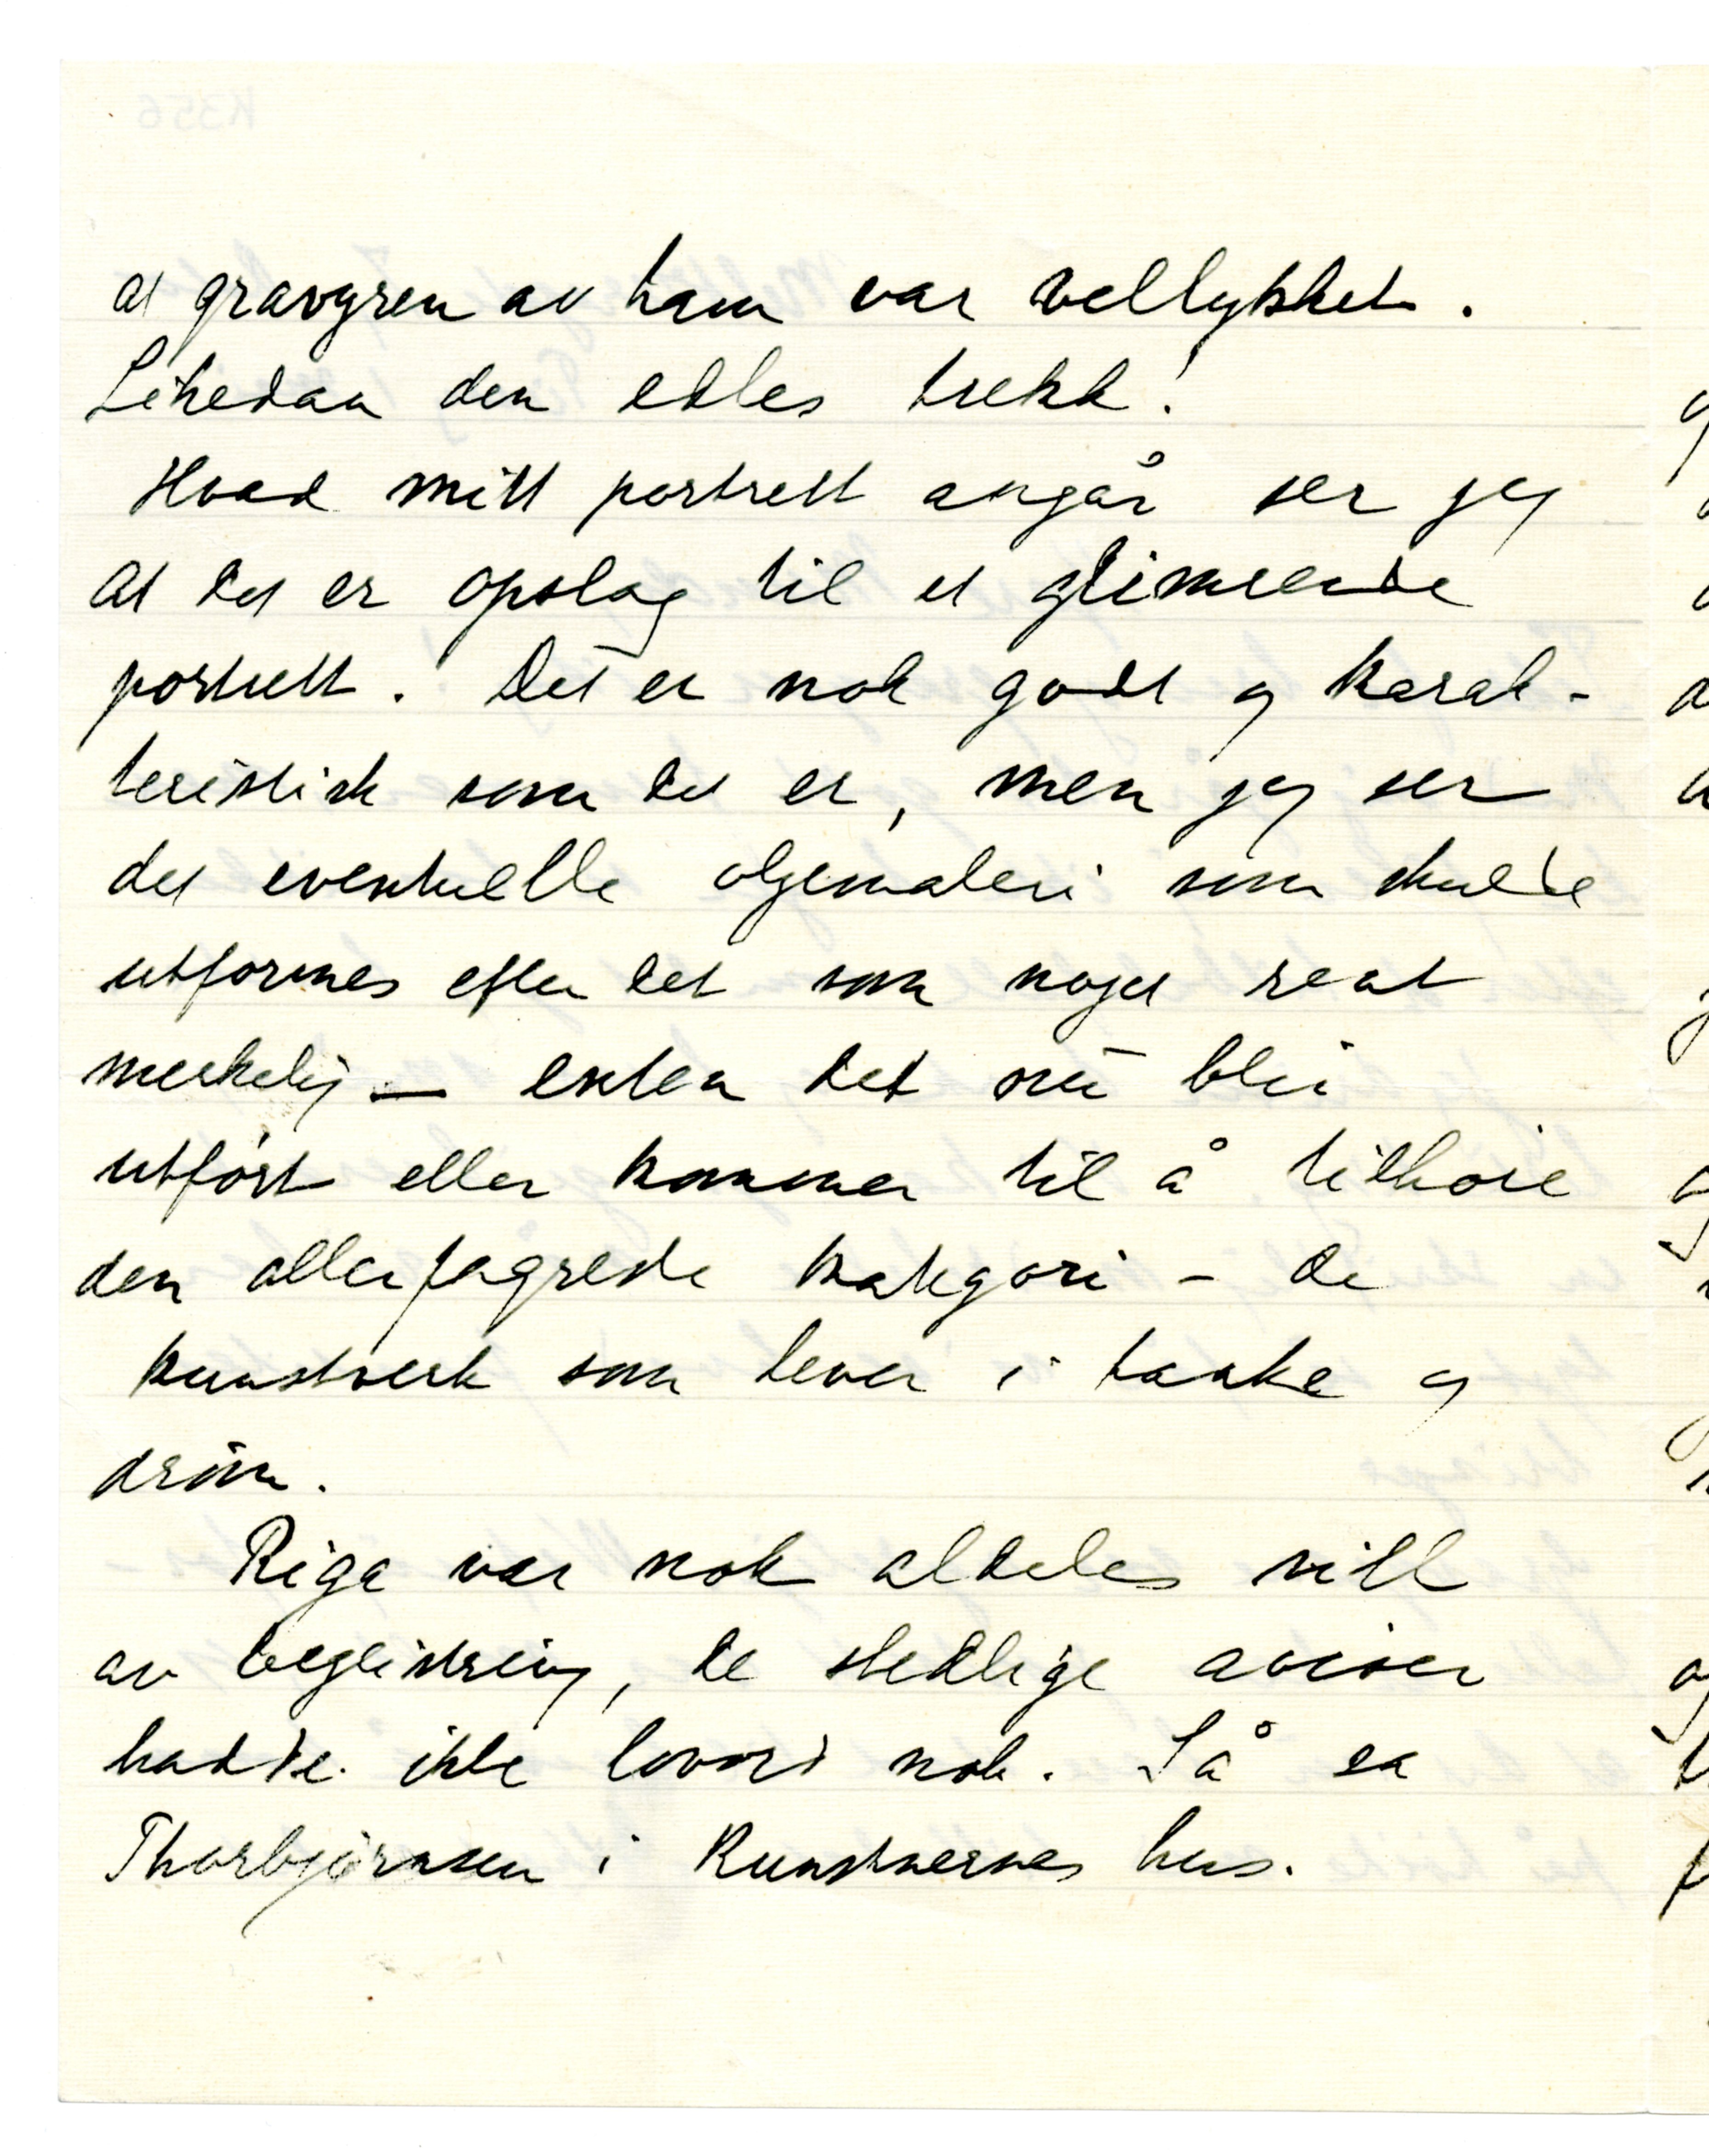 at gravyren av ham var vellykket.
Likedan den edles trekk!
Hvad mitt portrett angår ser jeg
at det er opslag til et glimrende
portrett. Det er nok godt og karak-
teristisk som det er, men jeg ser
det eventuelle oljemaleri som skulde
utformes efter det som noget rent
merkelig – enten det nu blir
utført eller kommer til å tilhøre
den allerfagreste kategori – de
kunstverk som lever i tanke og
drøm.
Riga var nok aldeles vill
av begeistring, de stedlige aviser
hadde ikke lovord nok. Så sa
Thorbjørnsen i Kunstnernes hus.